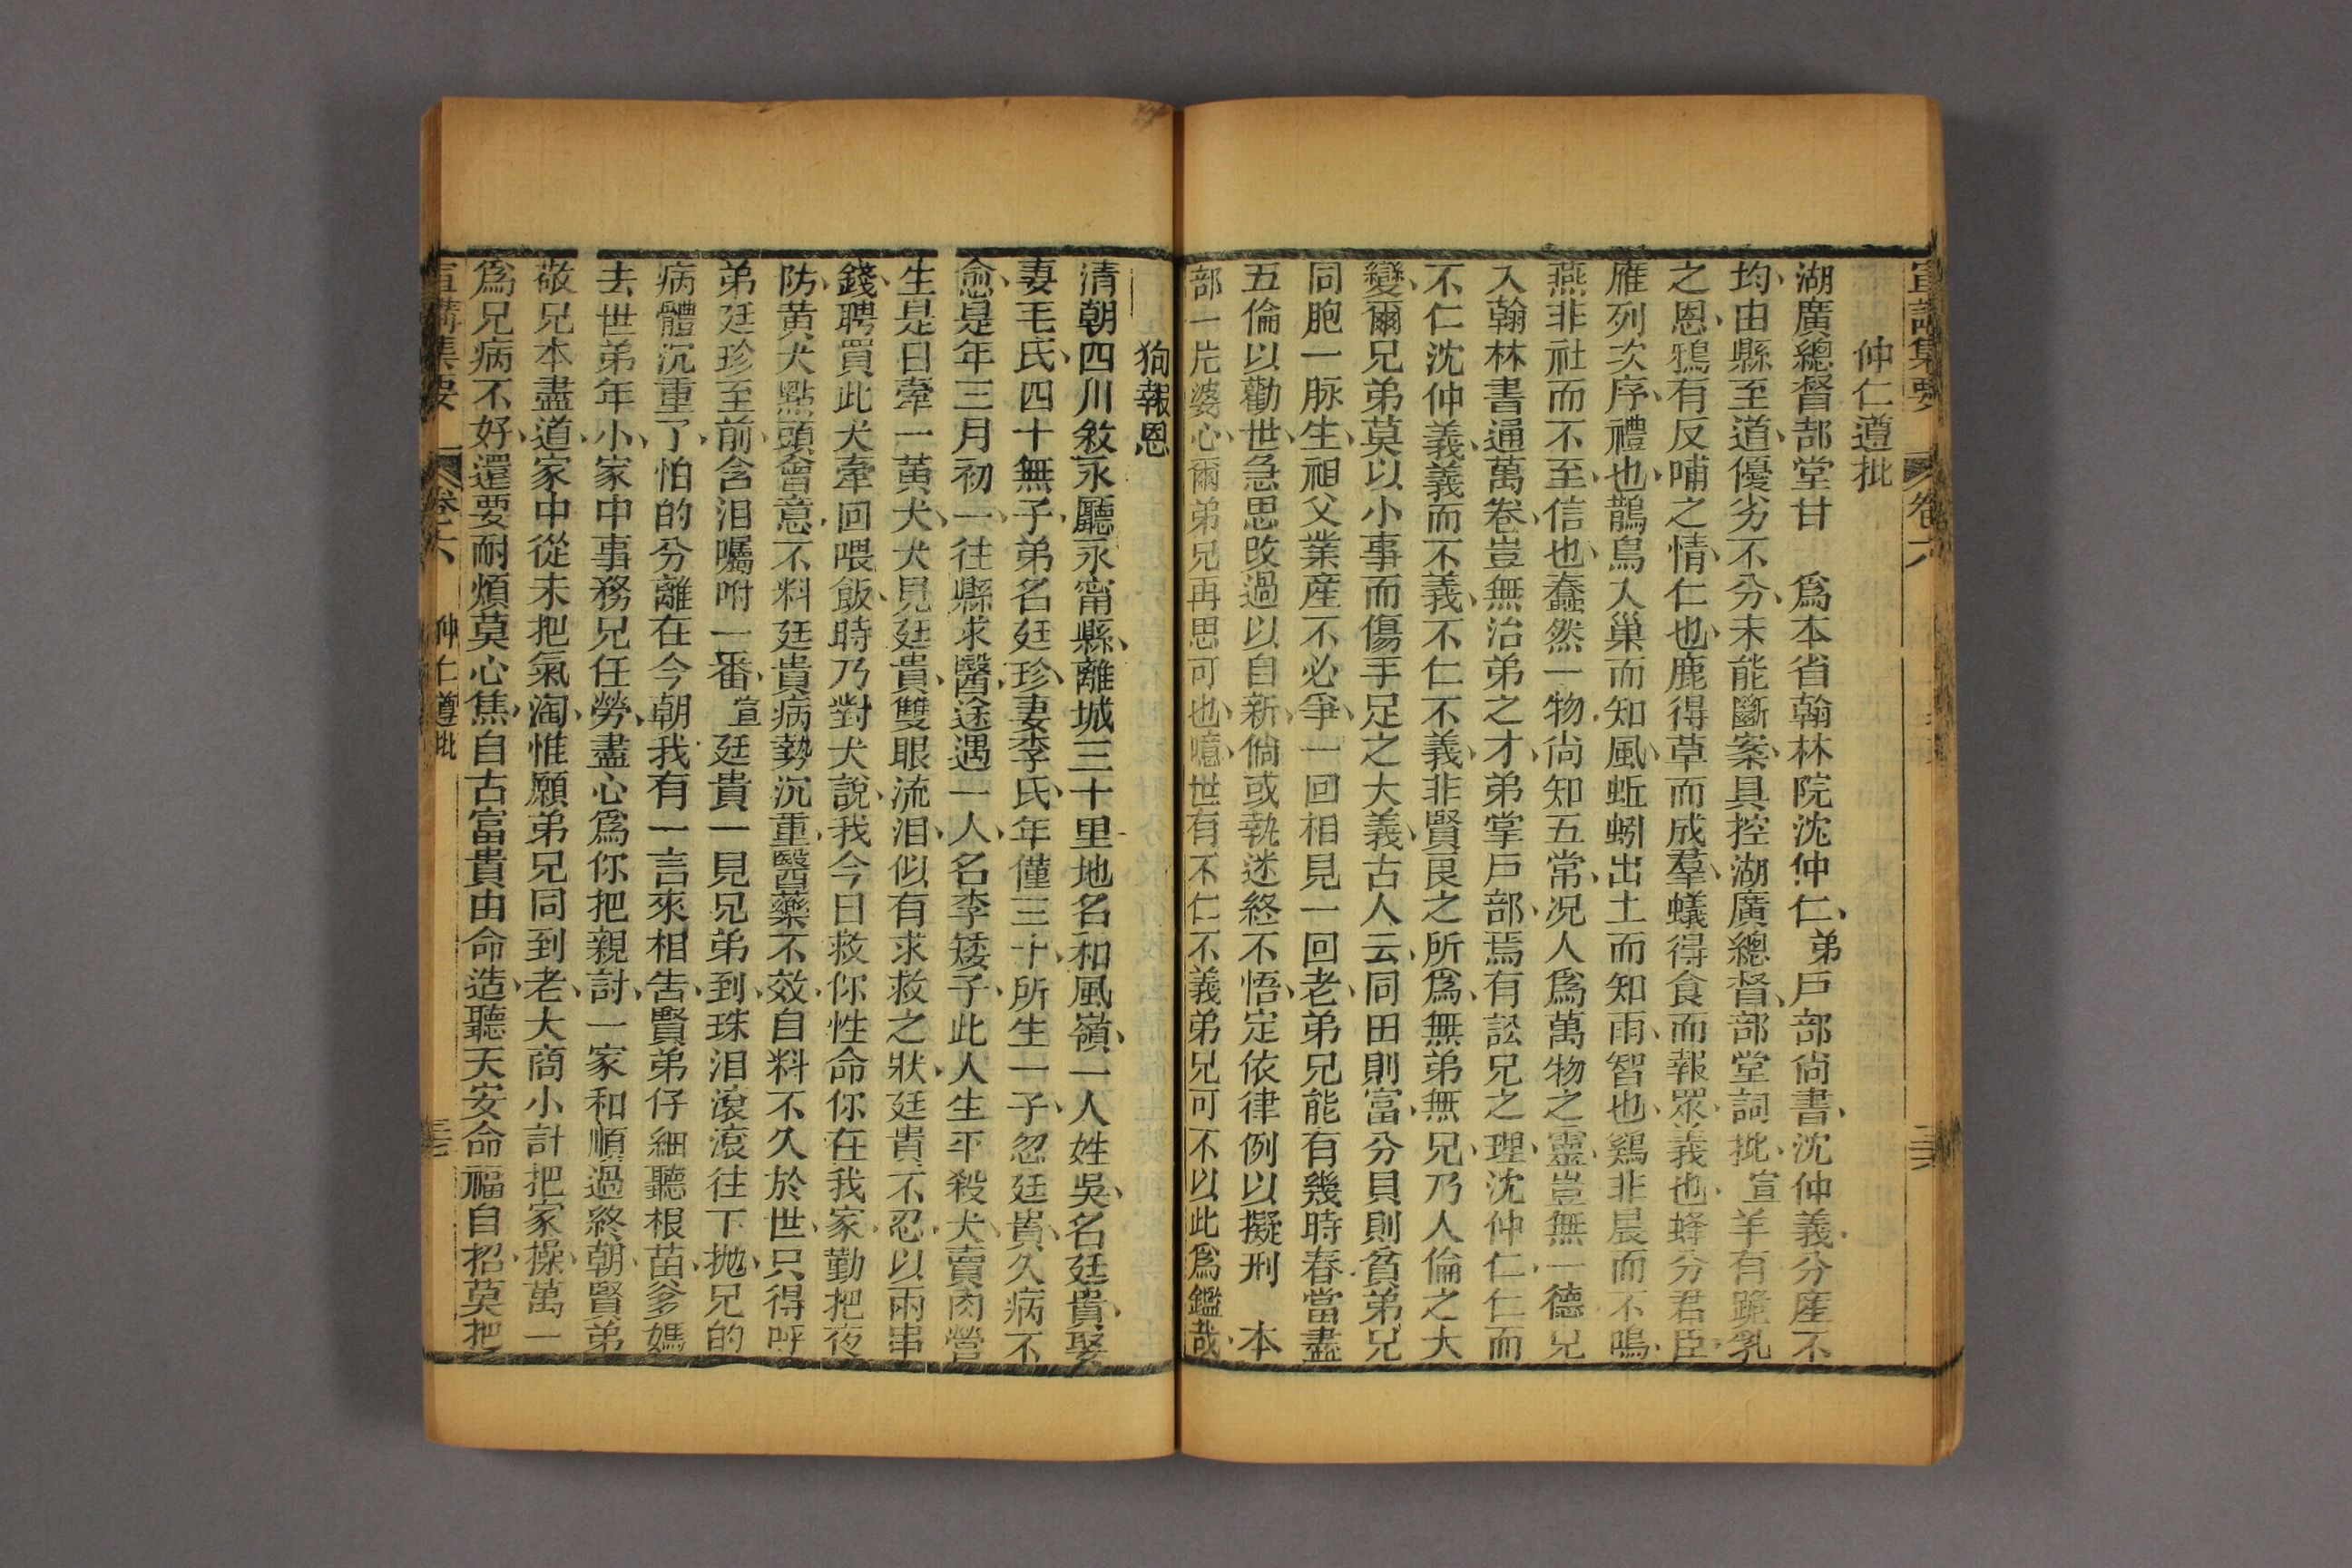 宣講集要 卷六
仲仁遵批
湖廣總督部堂甘 為本省翰林院沈仲仁、弟戶部尚書、沈仲義、分產不
均、由縣至道、優劣不分、未能斷案、具控湖廣總督、部堂詞批、宣羊有跪乳
之恩、鴉有反哺之情、仁也、鹿得草而成羣、蟻得食而報眾、義也、蜂分君臣、
雁列次序、禮也、鵲鳥入巢而知風、蚯蚓出土而知雨、智也、鷄非晨而不鳴、
燕非社而不至、信也、蠢然一物、尚知五常、况人為萬物之靈、豈無一德、兄
入翰林、書通萬卷、豈無治弟之才、弟掌戶部、焉有訟兄之理、沈仲仁、仁而
不仁、沈仲義、義而不義、不仁不義、非賢良之所為、無弟無兄、乃人倫之大
變、爾兄弟莫以小事而傷手足之大義、古人云、同田則富、分貝則貧、弟兄
同胞一脉生、祖父業產不必爭、一回相見一回老、弟兄能有幾時春、當盡
五倫以勸世、急思改過以自新、倘或執迷終不悟、定依律例以擬刑 本
部一片婆心、爾弟兄再思可也、噫、世有不仁不義弟兄、可不以此為鑑哉、
狗報恩
清朝四川敘永廳永甯縣、離城三十里、地名和風嶺、一人姓吳、名廷貴、娶
妻毛氏、四十無子、弟名廷珍、妻李氏、年僅三十、所生一子、忽廷貴久病不
愈、是年三月初一、往縣求醫、途遇一人、名李矮子、此人生平殺犬賣肉營
生、是日牽一黃犬、犬見廷貴、雙眼流泪、似有求救之狀、廷貴不忍、以兩串
錢、聘買此犬、牽回喂飯、時乃對犬說、我今日救你性命、你在我家、勤把夜
防、黃犬點頭會意、不料廷貴病勢沉重、醫藥不效、自料不久於世、只得呼
弟廷珍至前、含泪囑咐一番、宣廷貴一見兄弟到、珠泪滾滾往下抛、兄的
病體沉重了、怕的分離在今朝、我有一言來相告、賢弟仔細聽根苗、爹媽
去世弟年小、家中事務兄任勞、盡心為你把親討、一家和順過終朝、賢弟
敬兄本盡道、家中從未把氣淘、惟願弟兄同到老、大商小計把家操、萬一
為兄病不好、還要耐煩莫心焦、自古富貴由命造、聽天安命福自招、莫把
宣講集要 卷六 仲仁遵批